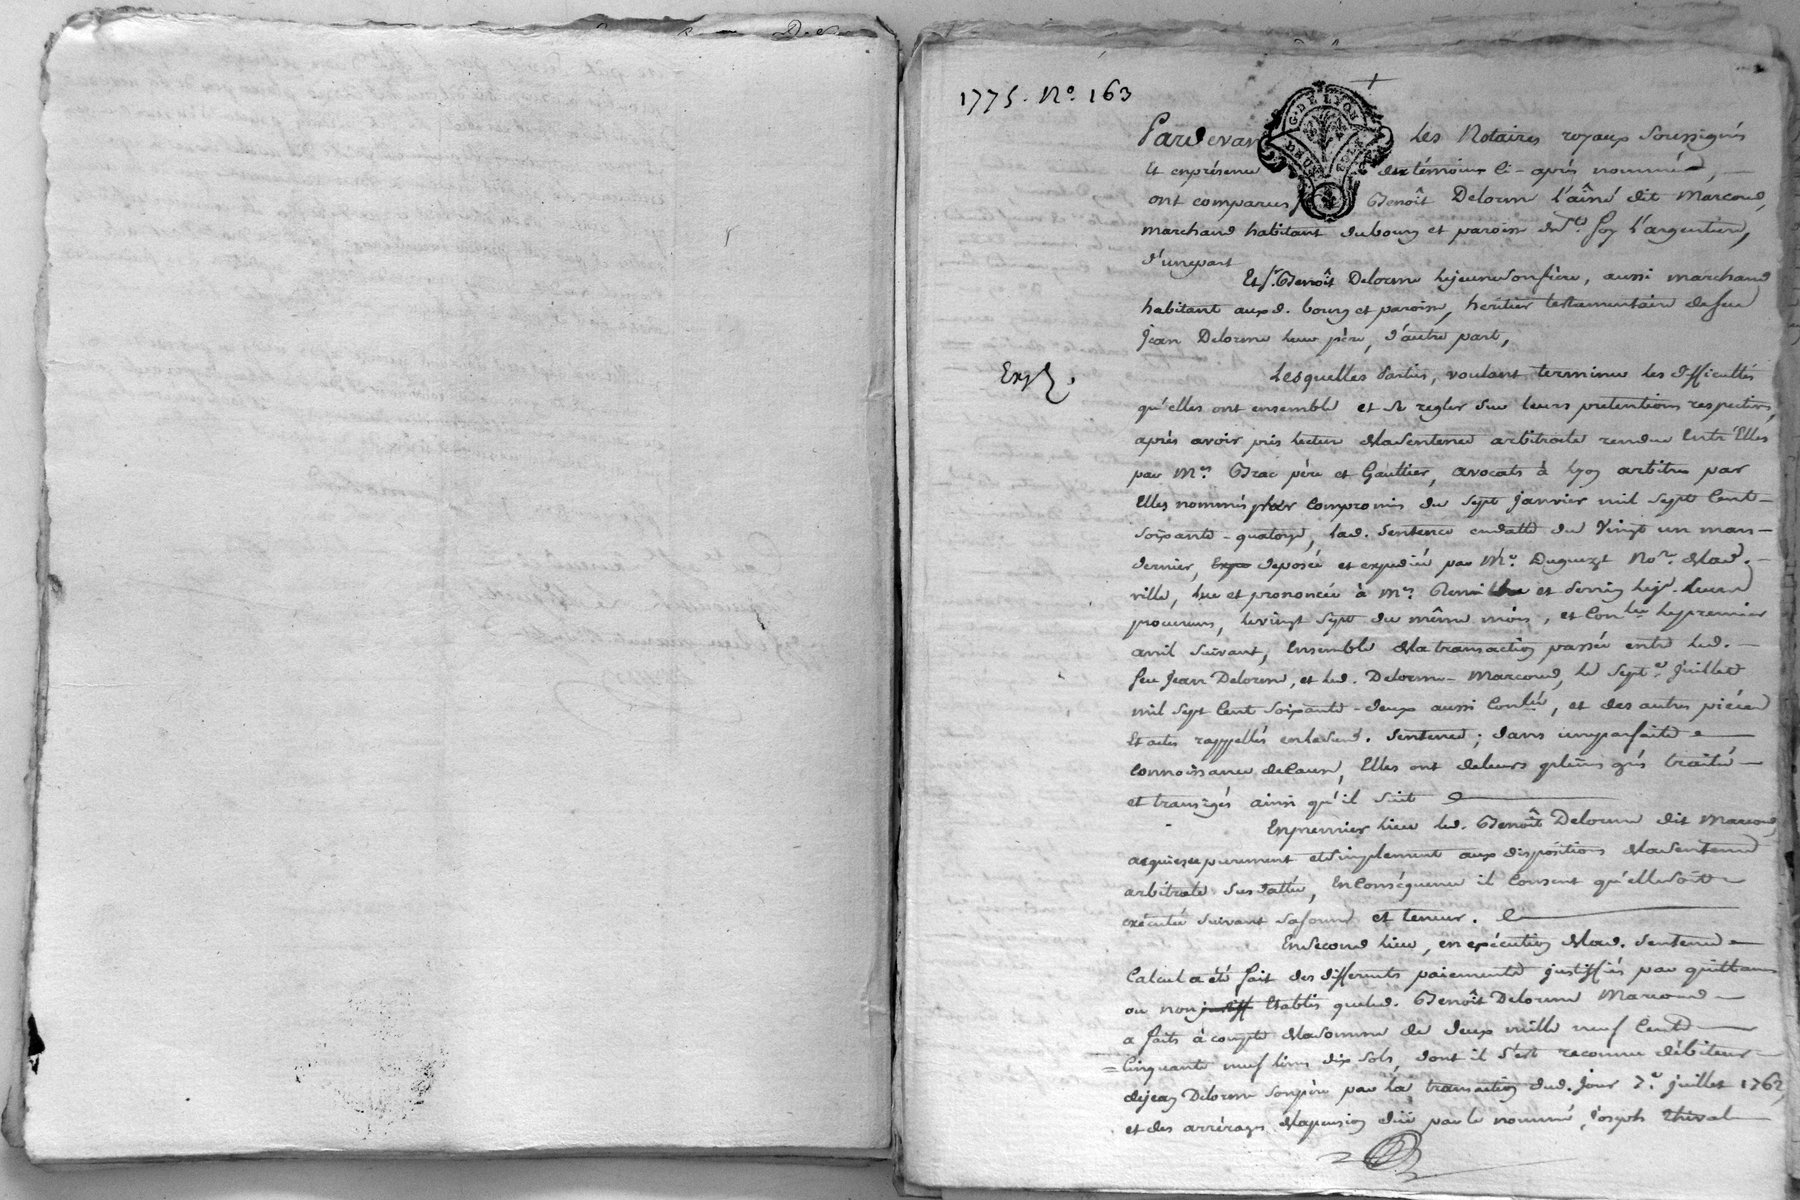 1775. N.º 163
G. DE LYON
DEUX SOLS
Pardevant les Notaires royaux soussignés
Et enprésence des témoins ci-après nommés,
ont comparus sr. Benoît Delorme l'aîné dit Marcoud,
marchand habitant dubourg et paroisse de Ste. foy l'argentiere,
d'unepart
Et sr. Benoît Delorme lejeune sonfrere, aussi marchand
habitant auxd. bourg et paroisse, heritier testamentaire defeu
Jean Delorme leur père, d'autre part,
Exp.
Lesquelles Parties, voulant terminer les difficultés
qu'elles ont ensemble et se regler sur leurs pretentions respectives,
après avoir pris lecture delaSentence arbitrale rendue Entr'Elles
par Mes. Brac père et Gaultier, avocats à Lyon arbitres par
Elles nommés par compromis du sept janvier mil sept Cent
soixante-quatorze, lad. Sentence endatte du Vingt un mars
dernier, Exp deposée et expediée par Me. Duguezt Nore. delad.
ville, lue et prononcée à Mes. et lejne. leurs
procureurs, levingt sept du même mois, et Conlée lepremier
avril suivant, Ensemble dela transaction passée entre led.
feu Jean Delorme, et led. Delorme-Marcoud, le septe. Juillet
mil sept Cent soixante-deux aussi Conlée, et des autres pièces
Et actes rappellés enladite. Sentence; dans uneparfaite
Connoissance deCause, Elles ont deleurs pleins grés traité
et transigés ainsi qu'il suit
Enpremier Lieu led. Benoît Delorme dit Marcoud,
acquiesce purement etsimplement aux dispositions delaSentence
arbitrale susdattée, EnConséquence il Consent qu'ellesoit
exécutée suivant saforme et teneur.
EnSecond Lieu, en exécution delad. Sentence
Calcul a été fait des differents paiements justiffiés par quittances
ou non justiff Etablis queled. Benoît Delorme Marcoud
a faits à compte delasomme de deux mille neuf Cents
Cinquante neuf livres dix sols, dont il s'est reconnu débiteur
dejean Delorme sonpère par la transaction dud. jour 7e. juillet 1762,
et des arrérages delapension düe par le nommé Joseph Thival